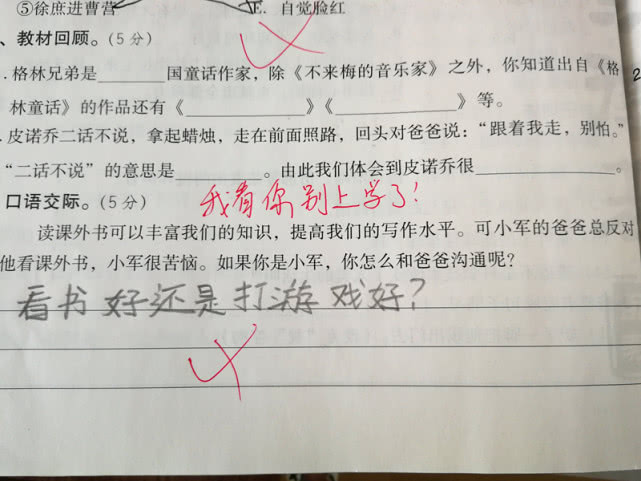 ⑤徐庶进曹营 E. 自觉脸红
、教材回顾。(5分)
.格林兄弟是________国童话作家，除《不来梅的音乐家》之外，你知道出自《格
林童话》的作品还有《______________》《______________》等。
.皮诺乔二话不说，拿起蜡烛，走在前面照路，回头对爸爸说：“跟着我走，别怕。”
“二话不说”的意思是__________。由此我们体会到皮诺乔很________________。
口语交际。(5分)
我看你别上学了!
读课外书可以丰富我们的知识，提高我们的写作水平。可小军的爸爸总反对
他看课外书，小军很苦恼。如果你是小军，你怎么和爸爸沟通呢？
看书好还是打游戏好？
2